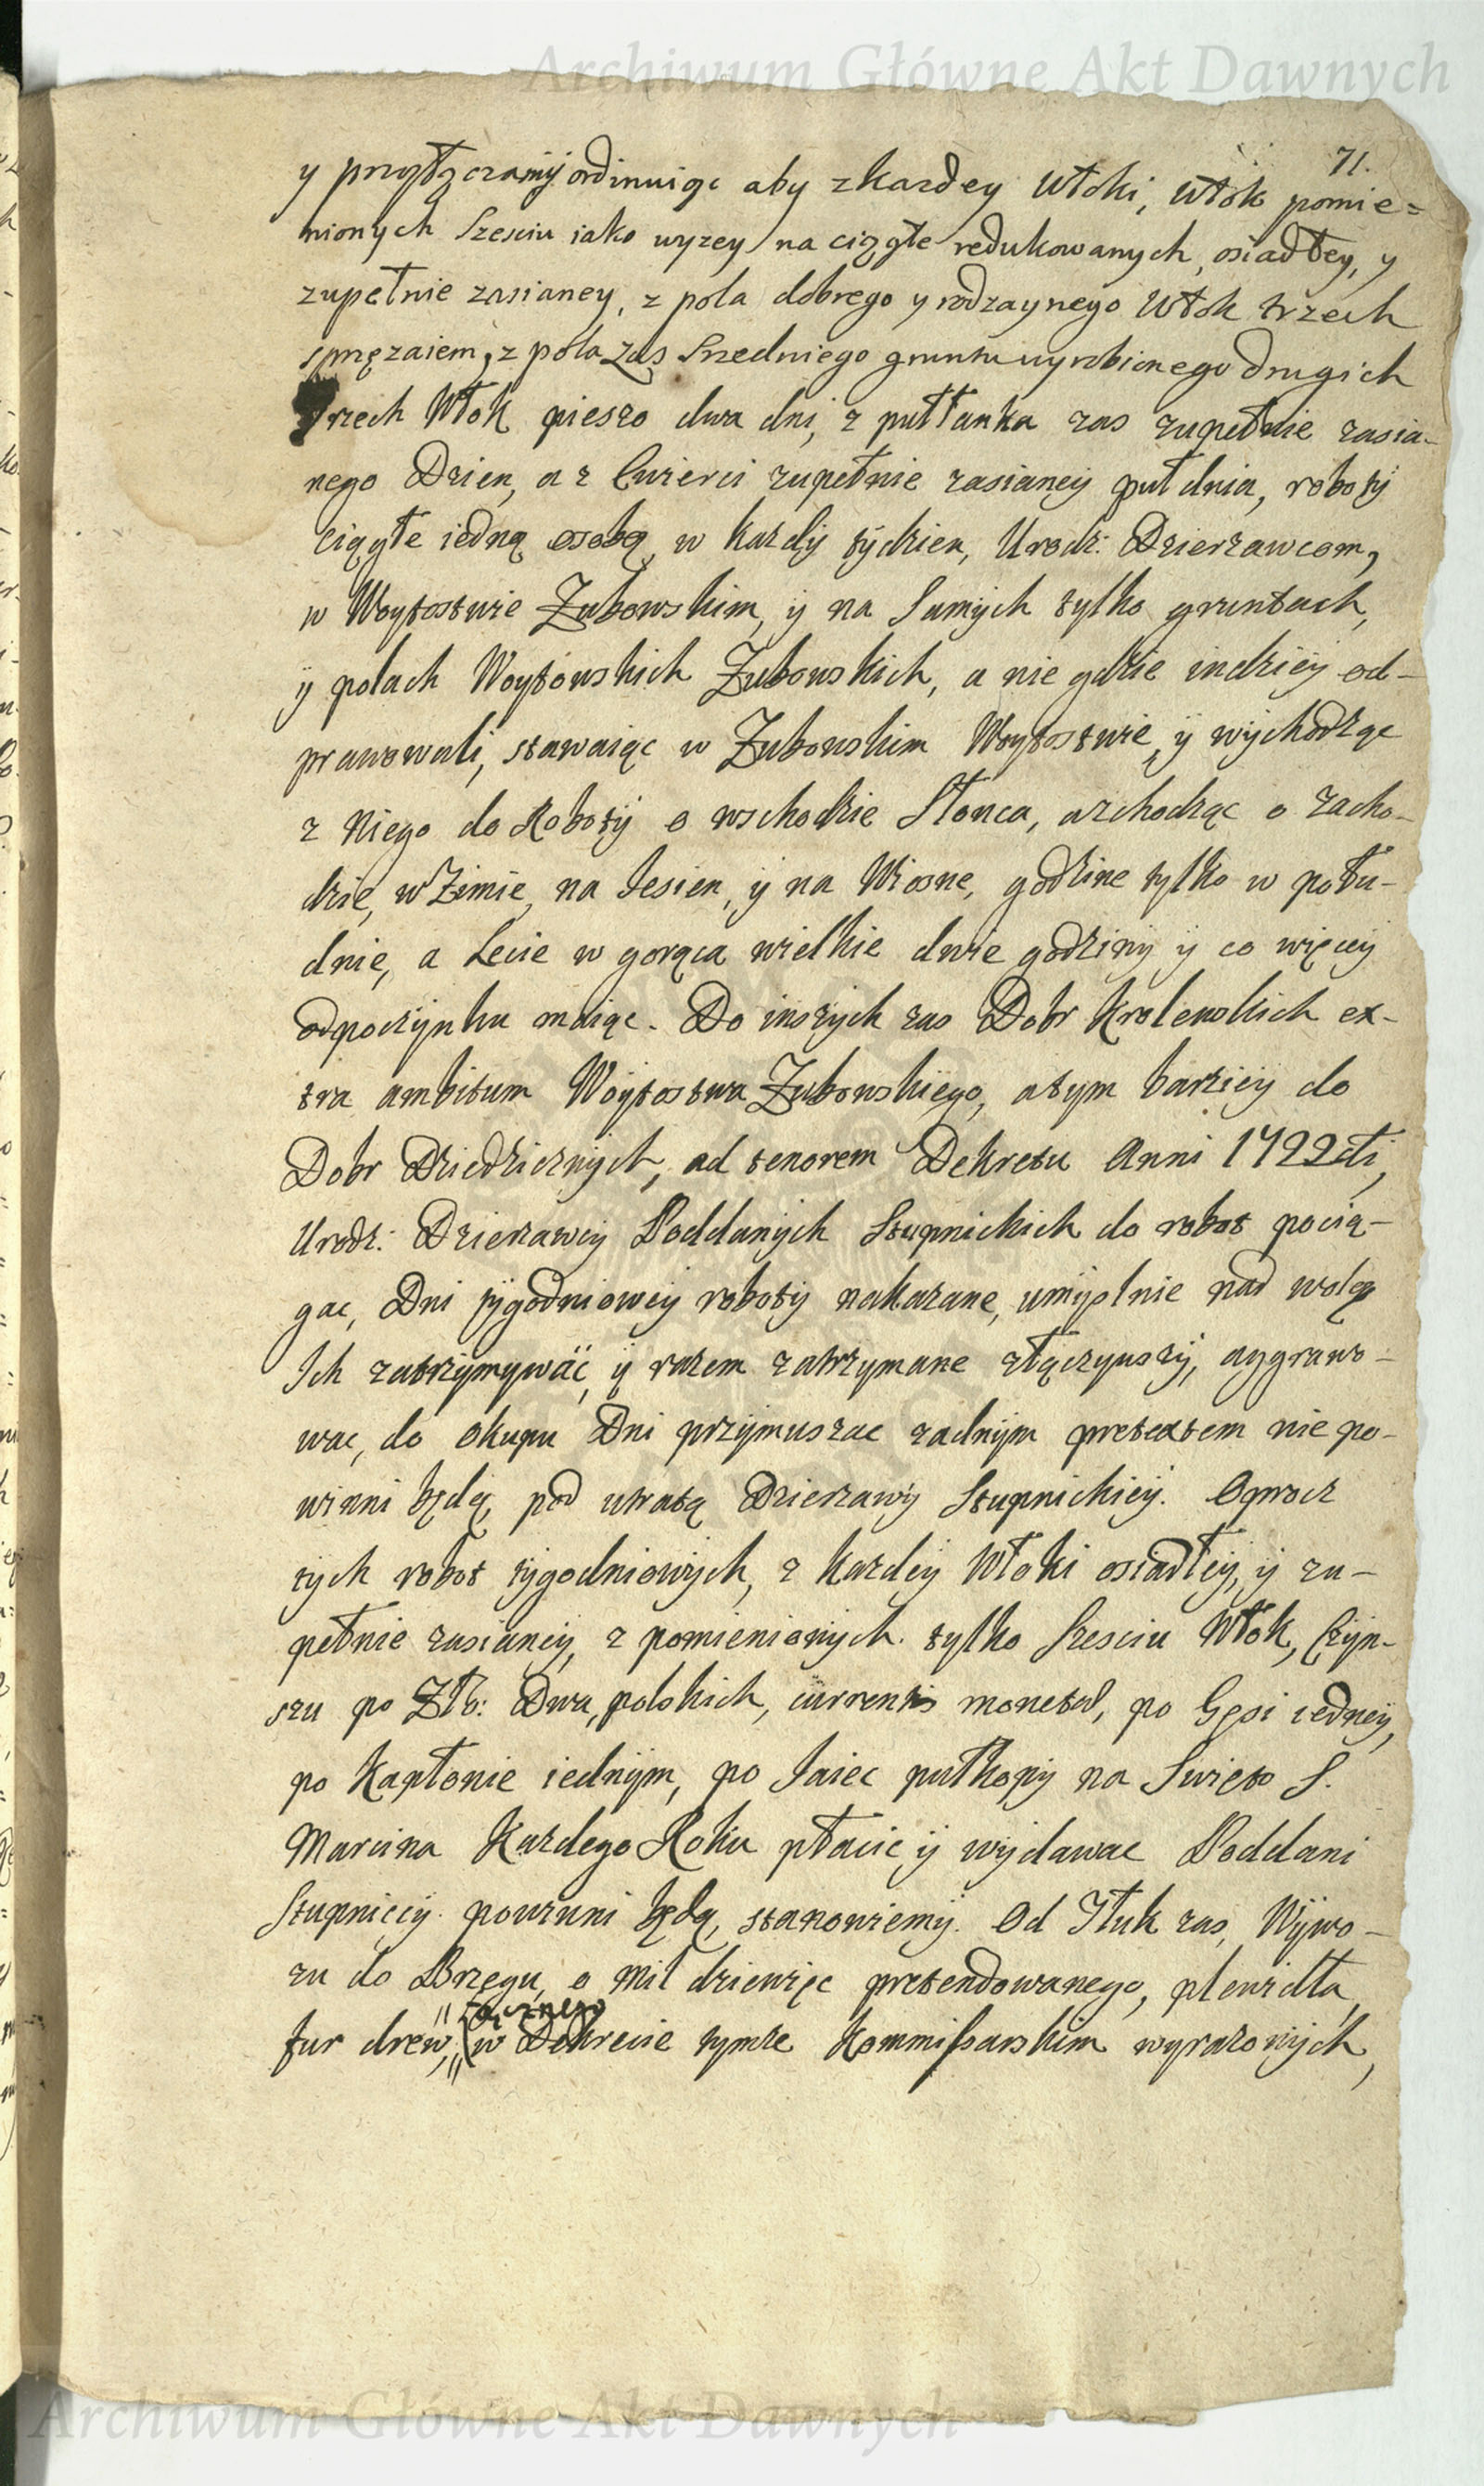 Archiwum Główne Akt Dawnych
71.
y przyłączamy ordinuiąc aby z kazdey Włoki, Włok pomie=
nionych Szesciu iako wyzey na ciągłe redukowanych, osiadłey, y
zupełnie zasianey, z pola dobrego y rodzaynego Włok trzech
sprzęzaiem, z pola zas Srzedniego gruntu wyrobionego drugich
trzech Włok pieszo dwa dni, z pułłanka zas zupełnie zasia-
nego Dzien, a z Cwierci zupełnie zasianey puł dnia, roboty
ciągłe iedną osobą w kazdy tydzien, Urodz: Dzierzawcom,
w Woytostwie Zubowskim, y na Samych tylko gruntach,
y polach Woytowskich Zubowskich, a nie gdzie indziey od-
prawowali, stawaiąc w Zubowskim Woytostwie, y wychodząc
z niego do Roboty o wschodzie Słonca, a zchodząc o zacho-
dzie, w Zimie, na Iesien, y na Wiosne, godzine tylko w połu-
dnie, a Lecie w gorąca wielkie dwie godziny y co więcey
odpoczynku maiąc. Do inszych zas Dobr Krolewskich ex-
tra ambitum Woytostwa Zubowskiego, a tym barziey do
Dobr Dziedzicznych, ad tenorem Dekretu Anni 1722di,
Urodz: Dzierzawcy Poddanych Stupnickich do robot pocią-
gac, Dni tygodniowey roboty nakazane, umyslnie nad wolą
Ich zatrzymywać, y razem zatrzymane złączywszy, aggrawo-
wac, do okupu Dni przymuszac zadnym pretextem nie po-
winni będą, pod utratą Dzierzawy Stupnickiey. Oprocz
tych robot tygodniowych, z kazdey Włoki osiadłey, y zu-
pełnie zasianey, z pomienionych tylko Szesciu Włok, Czyn-
szu po Złt: Dwa, polskich, currentis monetae, po Gęsi iedney,
po Kapłonie iednym, po Iaiec pułkopy na Swięto S.
Marcina Kazdego Roku płacic y wydawac Poddani
Stupniccy powinni będą, stanowiemy. Od Tłuk zas, Wywo-
zu do Brzegu, o mil dziewięc pretendowanego, plewidła,
fur drew, (w Dekrecie tymze Kommissarskim wyrazonych,
Archiwum Główne Akt Dawnych